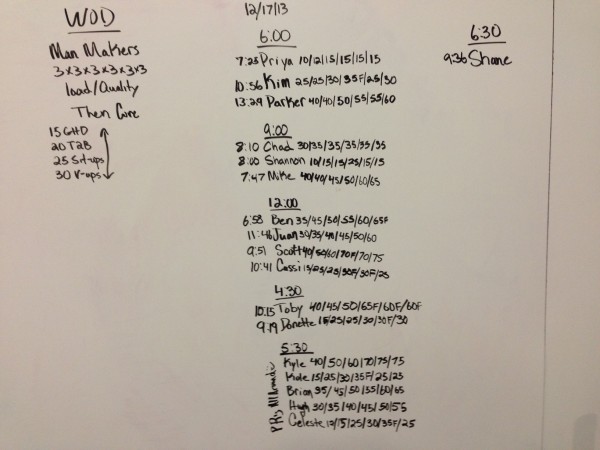 12/17/13
WOD
Man Makers
3x3x3x3x3x3
load/Quality
Then Core
15 GHD
20 T2B
25 Sit-ups
30 V-ups
6:00
7:23 Priya 10/12/15/15/15/15
10:36 Kim 25/25/30/35F/25/30
13:29 Parker 40/40/50/55/55/60
9:00
8:10 Chad 30/35/35/35/35/35
8:00 Shannon 10/15/15/25/15/15
7:47 Mike 40/40/45/50/60/65
12:00
6:58 Ben 35/45/50/55/60/65F
11:46 Juan 30/35/40/45/50/60
9:51 Scott 40/50/60/70F/70/75
10:41 Cassi 15/25/25/30F/30F/25
4:30
10:15 Toby 40/45/50/65F/60F/60F
9:19 Donette 15/25/25/30/30F/30
5:30
Kyle 40/50/60/70/75/75
Kole 15/25/30/35F/25/25
Brian 35/45/50/55/60/65
Hugh 30/35/40/45/50/55
Celeste 12/15/25/30/35F/25
PRs All
6:30
9:36 Shane